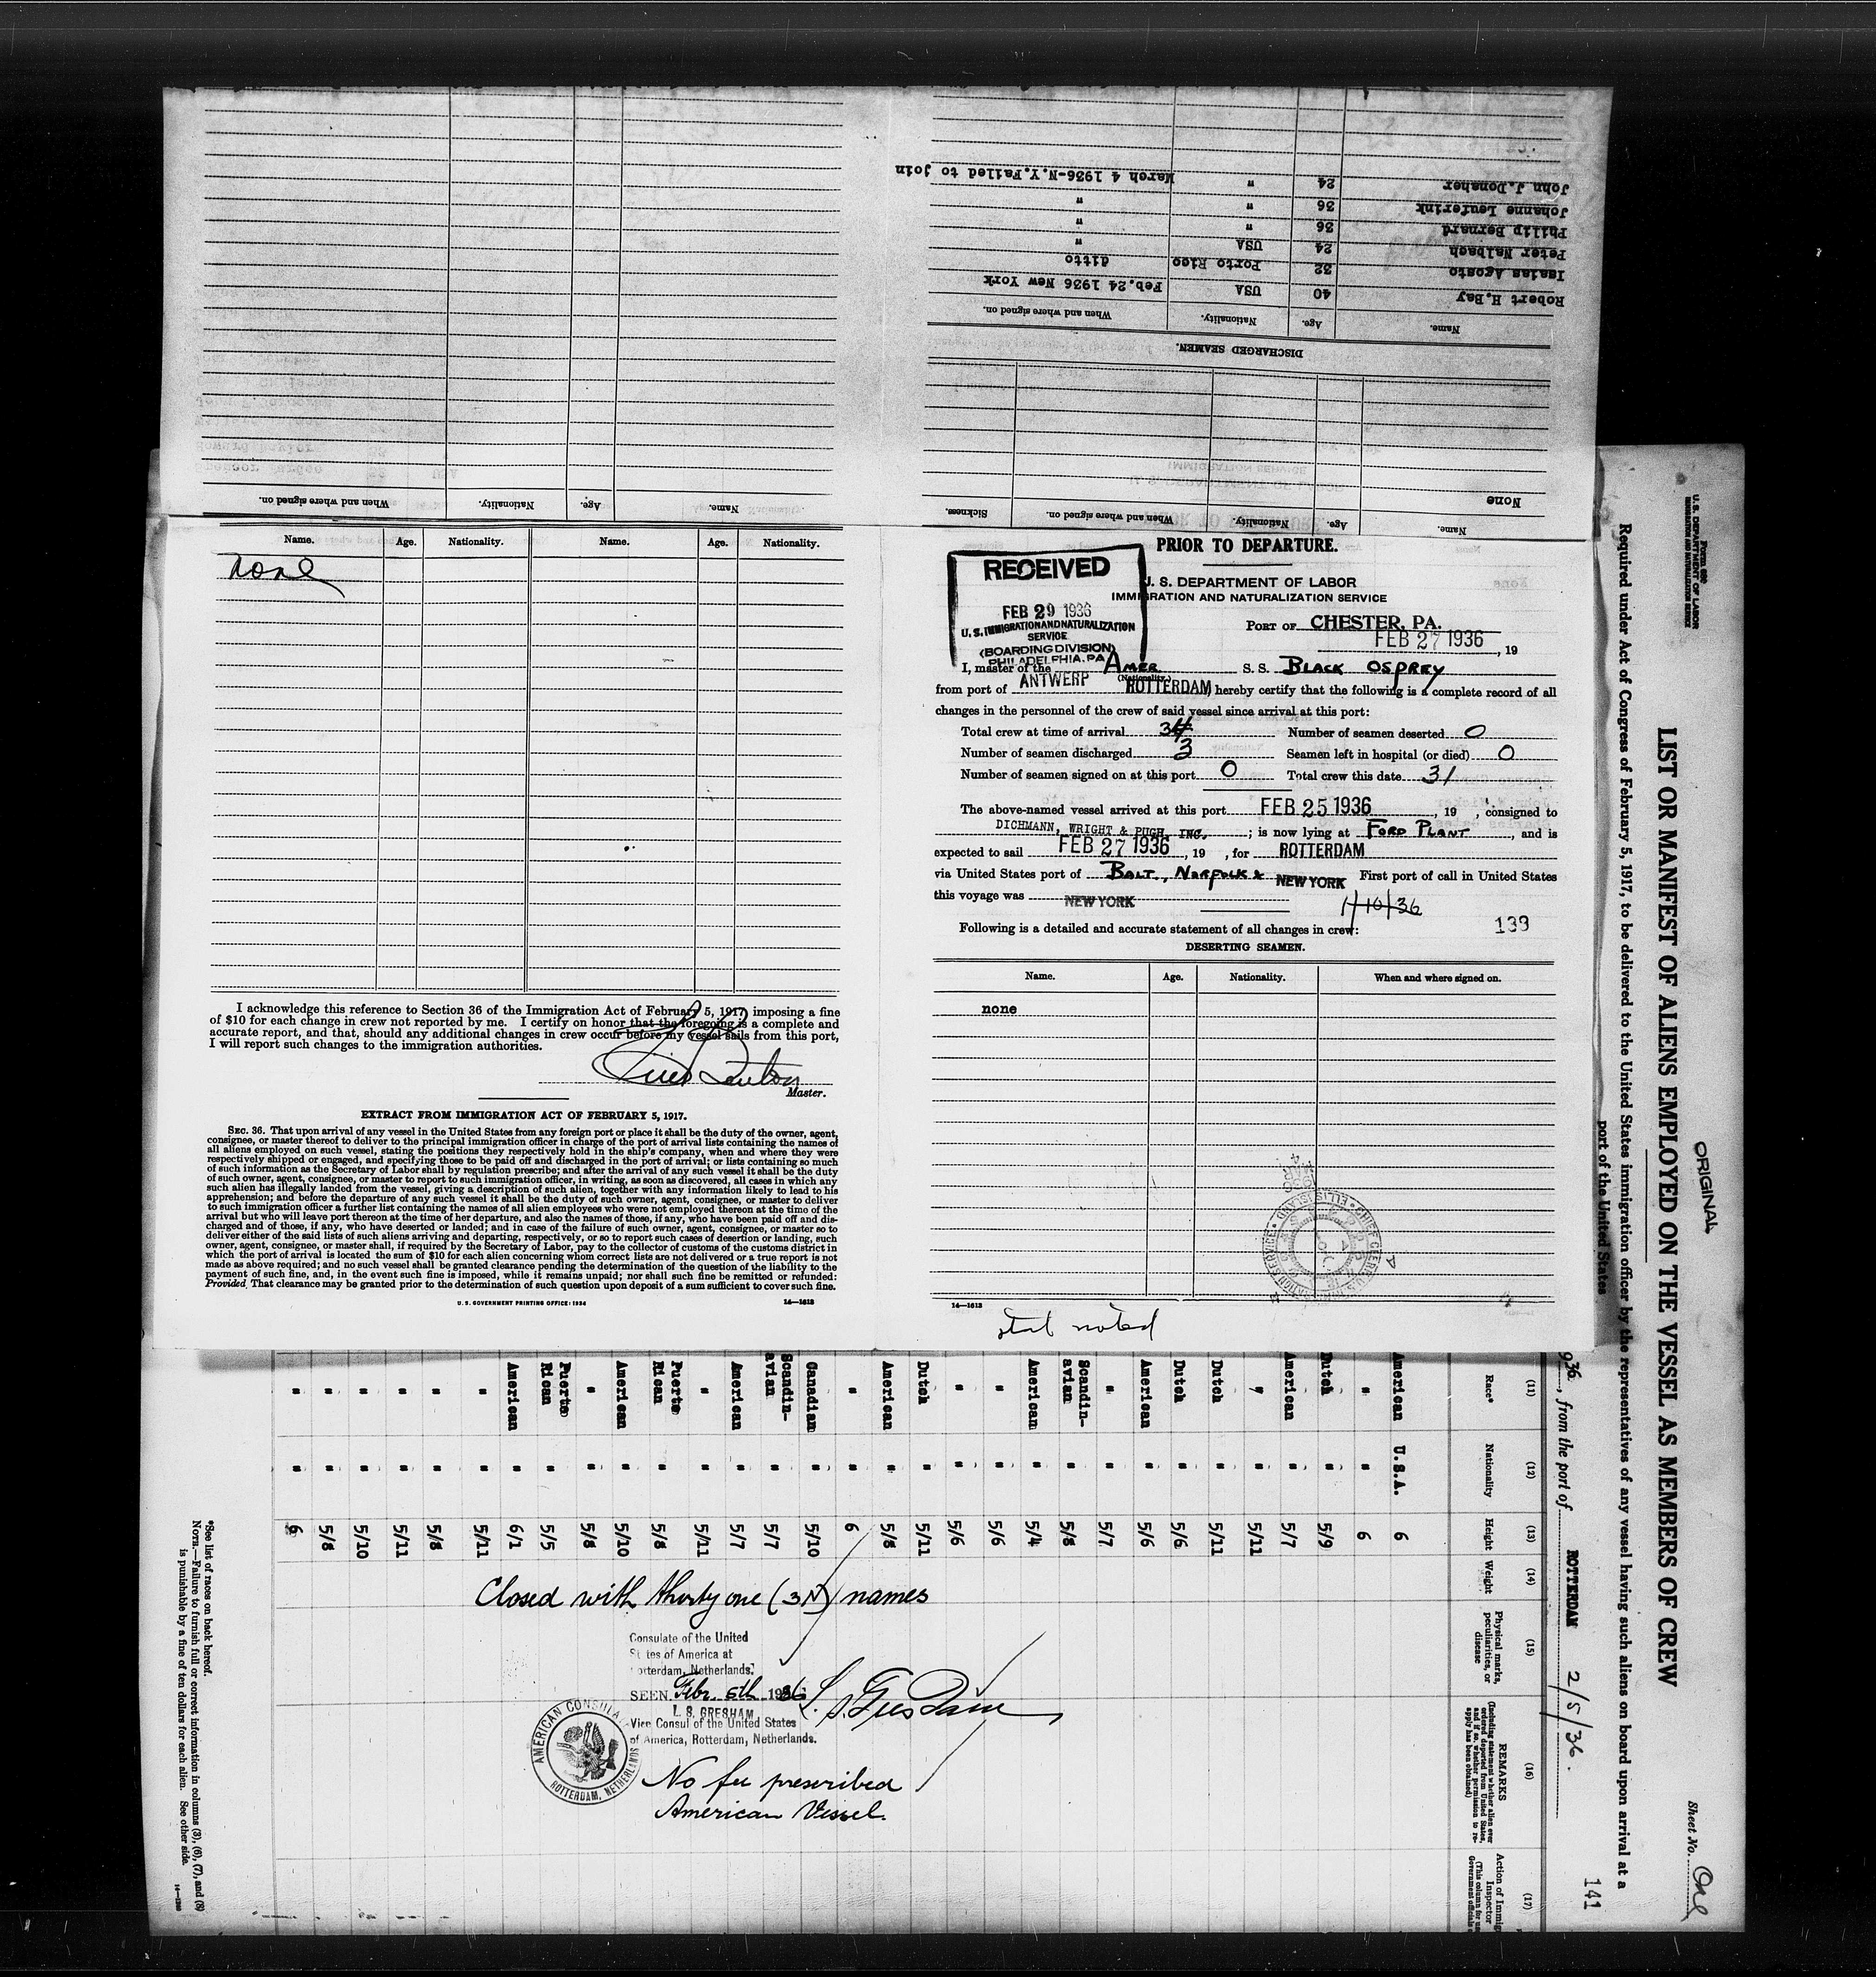 Name. Age. Nationality. When and where signed on.
DISCHARGED SEAMEN.
Name. Age. Nationality. When and where signed on.
Robert H.Bay 40 USA Feb.24 1936 New York
Isaias Agosto 32 Porto Rico ditto
Peter Nalbach 24 USA "
Philip Bernard 36 " "
Johanne Leuferink 36 " "
John J.Donaher 24 " March 4 1936-N.Y.Failed to join
Name. Age. Nationality. When and where signed on. Sickness.
None
Name. Age. Nationality. Name. Age. Nationality.
none
I acknowledge this reference to Section 36 of the Immigration Act of February 5, 1917, imposing a fine
of $10 for each change in crew not reported by me. I certify on honor that the foregoing is a complete and
accurate report, and that, should any additional changes in crew occur before my vessel sails from this port,
I will report such changes to the immigration authorities.
Master.
EXTRACT FROM IMMIGRATION ACT OF FEBRUARY 5, 1917.
SEC. 36. That upon arrival of any vessel in the United States from any foreign port or place it shall be the duty of the owner, agent,
consignee, or master thereof to deliver to the principal immigration officer in charge of the port of arrival lists containing the names of
all aliens employed on such vessel, stating the positions they respectively hold in the ship's company, when and where they were
respectively shipped or engaged, and specifying those to be paid off and discharged in the port of arrival; or lists containing so much
of such information as the Secretary of Labor shall by regulation prescribe; and after the arrival of any such vessel it shall be the duty
of such owner, agent, consignee, or master to report to such immigration officer, in writing, as soon as discovered, all cases in which any
such alien has illegally landed from the vessel, giving a description of such alien, together with any information likely to lead to his
apprehension; and before the departure of any such vessel it shall be the duty of such owner, agent, consignee, or master to deliver
to such immigration officer a further list containing the names of all alien employees who were not employed thereon at the time of the
arrival but who will leave port thereon at the time of her departure, and also the names of those, if any, who have been paid off and dis-
charged and of those, if any, who have deserted or landed; and in case of the failure of such owner, agent, consignee, or master so to
deliver either of the said lists of such aliens arriving and departing, respectively, or so to report such cases of desertion or landing, such
owner, agent, consignee, or master shall, if required by the Secretary of Labor, pay to the collector of customs of the customs district in
which the port of arrival is located the sum of $10 for each alien concerning whom correct lists are not delivered or a true report is not
made as above required; and no such vessel shall be granted clearance pending the determination of the question of the liability to the
payment of such fine, and, in the event such fine is imposed, while it remains unpaid; nor shall such fine be remitted or refunded:
Provided, That clearance may be granted prior to the determination of such question upon deposit of a sum sufficient to cover such fine.
U. S. GOVERNMENT PRINTING OFFICE: 1934 14—1613
PRIOR TO DEPARTURE.
RECEIVED
FEB 29 1936
U.S. IMMIGRATION AND NATURALIZATION
SERVICE
(BOARDING DIVISION)
PHILADELPHIA, PA
U. S. DEPARTMENT OF LABOR
IMMIGRATION AND NATURALIZATION SERVICE
PORT OF CHESTER, PA.
FEB 27 1936, 19
I, master of the Amer S. S. BLACK OSPREY
(Nationality.)
from port of ANTWERP ROTTERDAM, hereby certify that the following is a complete record of all
changes in the personnel of the crew of said vessel since arrival at this port:
Total crew at time of arrival 34 Number of seamen deserted 0
Number of seamen discharged 3 Seamen left in hospital (or died) 0
Number of seamen signed on at this port 0 Total crew this date 31
The above-named vessel arrived at this port FEB 25 1936, 19 , consigned to
DICHMANN, WRIGHT & PUGH, INC. ; is now lying at FORD PLANT, and is
expected to sail FEB 27 1936, 19 , for ROTTERDAM
via United States port of BALT., NORFOLK & NEW YORK First port of call in United States
this voyage was NEW YORK
1/10/36
Following is a detailed and accurate statement of all changes in crew:
139
DESERTING SEAMEN.
Name. Age. Nationality. When and where signed on.
none
14—1613
stat noted
Form 680
U. S. DEPARTMENT OF LABOR
IMMIGRATION AND NATURALIZATION SERVICE
ORIGINAL
Sheet No. One
LIST OR MANIFEST OF ALIENS EMPLOYED ON THE VESSEL AS MEMBERS OF CREW
Required under Act of Congress of February 5, 1917, to be delivered to the United States immigration officer by the representatives of any vessel having such aliens on board upon arrival at a
port of the United States
141
936, from the port of ROTTERDAM 2/5/36.
(11) (12) (13) (14) (15) (16) (17)
Race* Nationality Height Weight Physical marks, peculiarities, or disease REMARKS (Including statement whether alien ever ordered deported from United States, and if so, whether permission to re-apply has been obtained) Action of Immig Inspector (This column for use Government officials
American U.S.A. 6
" " 6
Dutch " 5/9
American " 5/7
" " 5/11
Dutch " 5/11
Dutch " 5/6
American " 5/6
" " 5/7
Scandin-avian " 5/8
American " 5/4
" " 5/6
" " 5/6
Dutch " 5/11
American " 5/8
" " 6
Canadian " 5/10
Scandin-avian " 5/7
American " 5/7
" " 5/11
Puerto Rican " 5/8
American " 5/10
" " 5/8
Puerto Rican " 5/5
American " 6/1
" " 5/11
" " 5/8
" " 5/11
" " 5/10
" " 5/8
" " 6
Closed with thirty one (31) names
Consulate of the United
States of America at
Rotterdam, Netherlands.
SEEN Febr. 5th 1936
L. S. GRESHAM
Vice Consul of the United States
of America, Rotterdam, Netherlands.
AMERICAN CONSULATE
ROTTERDAM, NETHERLANDS
No fee prescribed
American Vessel.
*See list of races on back hereof.
NOTE.—Failure to furnish full or correct information in columns (3), (6), (7), and (8)
is punishable by a fine of ten dollars for each alien. See other side.